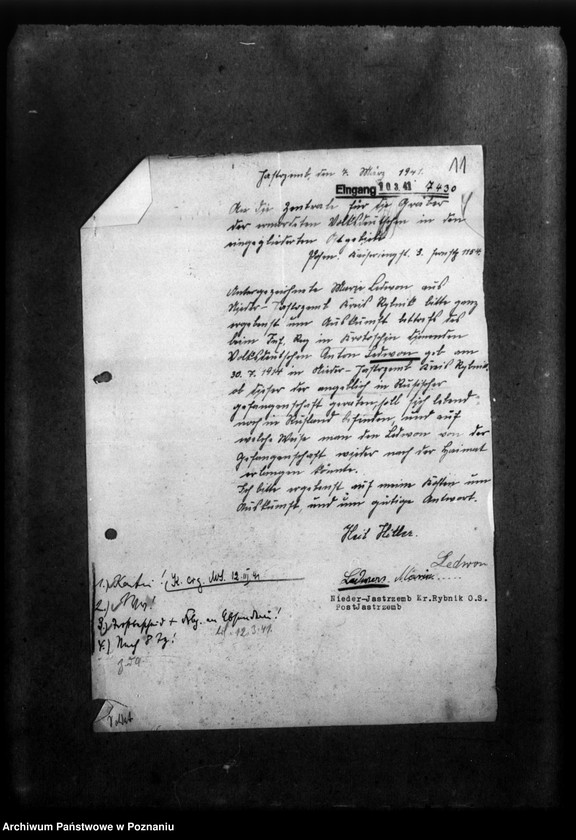 Jastrzemb, den 4. März 1941.
11
Eingang 10.3.41 7430
An die Zentrale für die Gräber
der ermordeten Volksdeutschen in den
eingegliederten Ostgebieten
Posen. Kaiserring
Unterzeichnete Marie Ledwon aus
Nieder-Jastrzemb Kreis Rybnik bitte ganz
ergebenst um Auskunft betreffs des
beim Inf. Reg in Krotoschin dienenden
Volksdeutschen Anton Ledwon geb am
in Nieder-Jastrzemb Kreis Rybnik,
ob dieser der angeblich in Rusischer
gefangenschaft geraten, soll sich lebend
noch in Rusland befinden, und auf
welche Weise man den Ledwon von der
Gefangenschaft wieder nach der Heimat
erlangen könnte.
Ich bitte ergebenst auf meine Kosten um
Auskunft, und um gütige Antwort.
Heil Hitler.
Ledwon
Ledwon Maria.....
Nieder-Jastrzemb Kr.Rybnik O.S.
PostJastrzemb
1.) Kartei!
2.)
3.) + an Absenderin!
12.3.41.
4.) Nach
z.d.A.
Archiwum Państwowe w Poznaniu